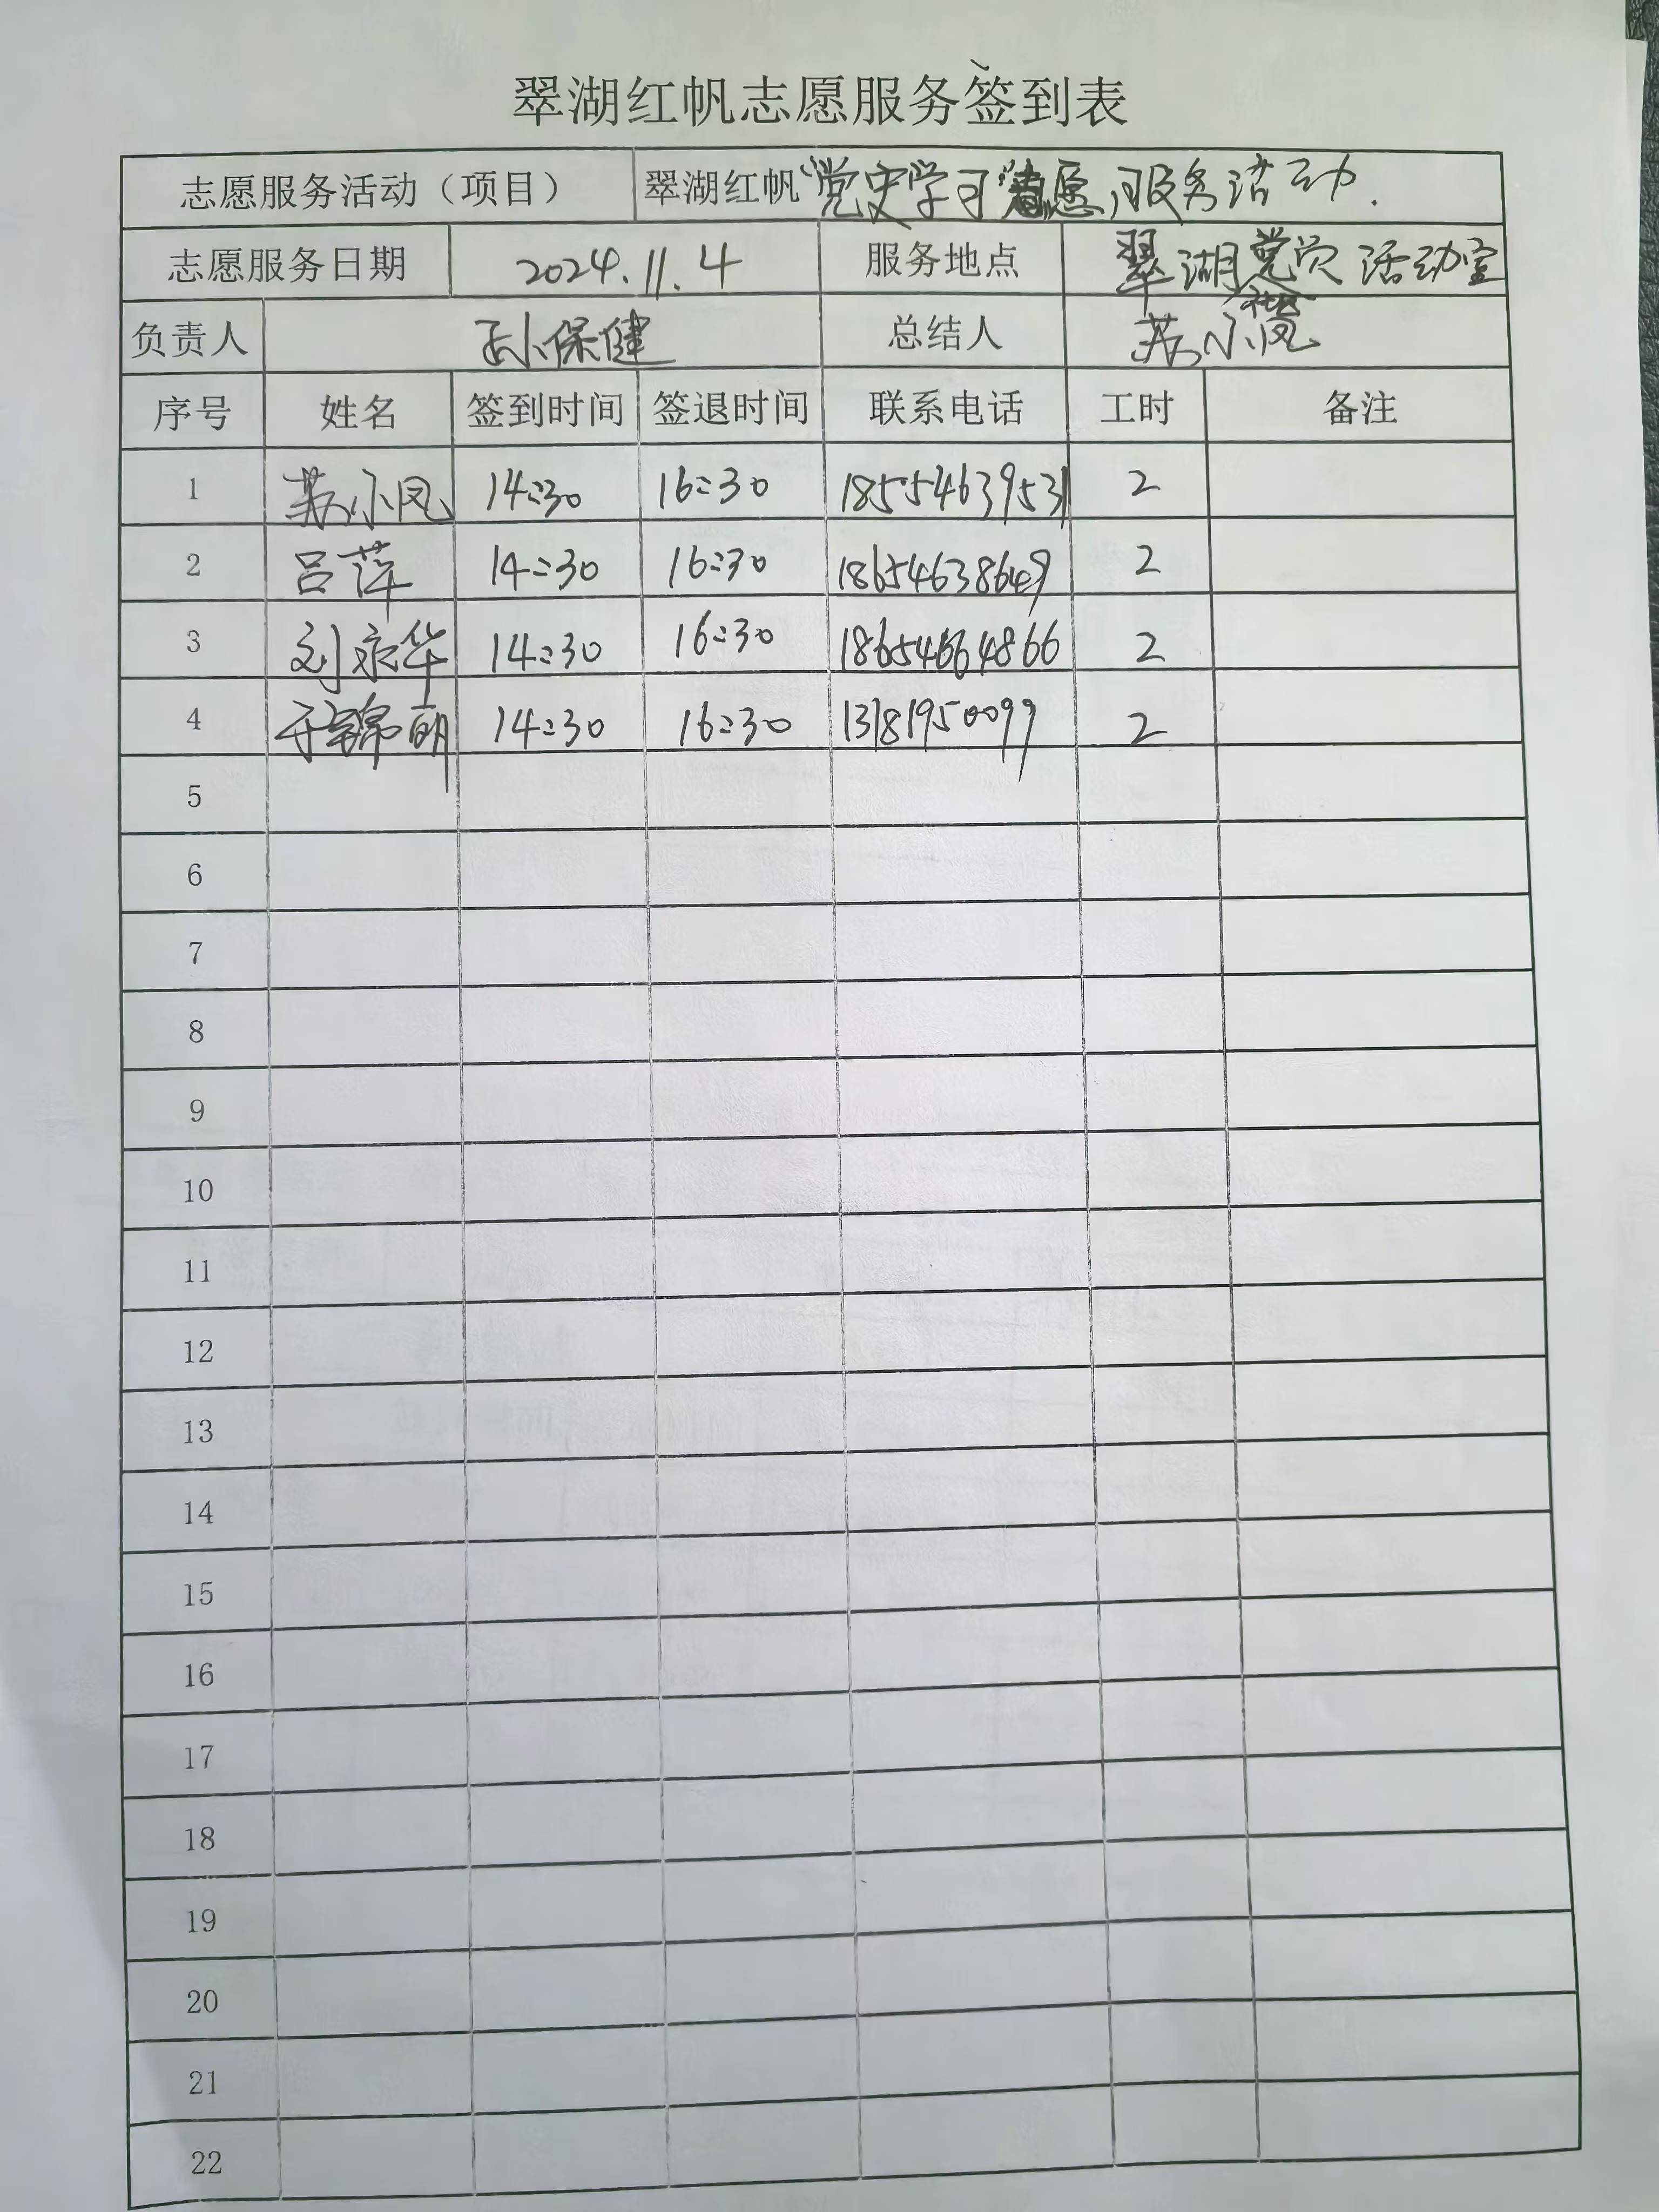 翠湖红帆志愿服务签到表
志愿服务活动（项目） 翠湖红帆“党史学习”志愿服务活动.
志愿服务日期 2024.11.4 服务地点 翠湖社区党员活动室
负责人 孙保健 总结人 苏小凤
序号 姓名 签到时间 签退时间 联系电话 工时 备注
1 苏小凤 14:30 16:30 18554639531 2
2 吕萍 14:30 16:30 18654638649 2
3 刘永华 14:30 16:30 18654664866 2
4 于锦朝 14:30 16:30 13181950099 2
5
6
7
8
9
10
11
12
13
14
15
16
17
18
19
20
21
22